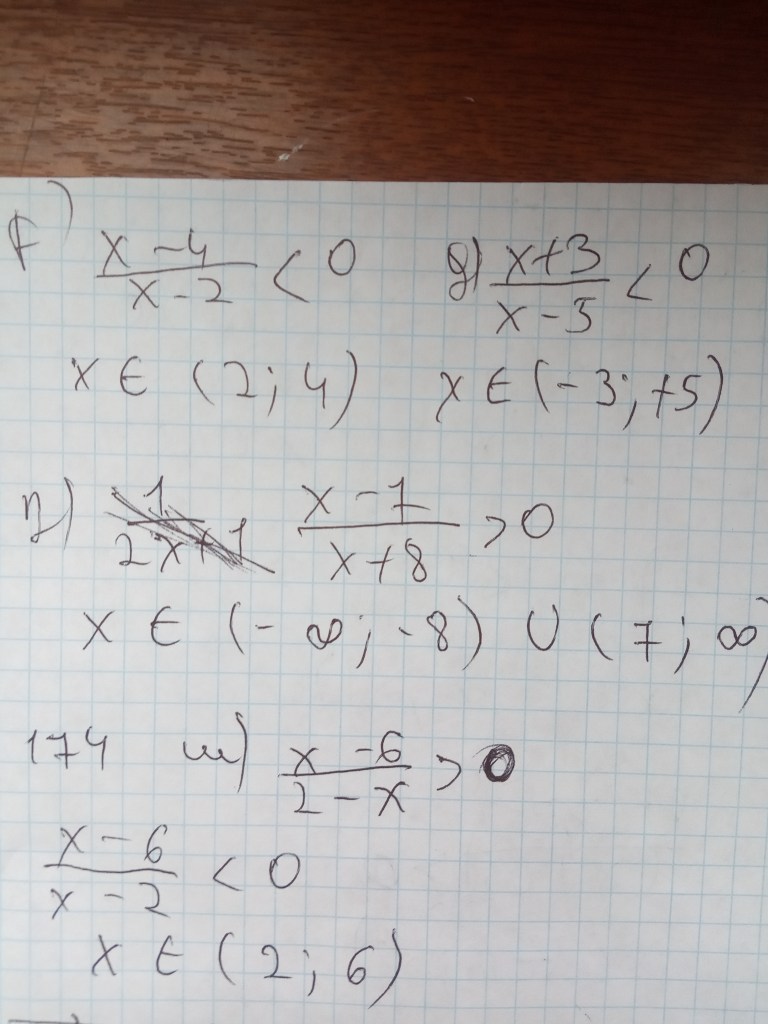 x - 4 / x - 2 < 0    g) x+3 / x - 5 < 0
x ∈ (2; 4)    x ∈ (-3; +5)
x - 7 / x + 8 > 0
x ∈ (-∞; -8) ∪ (7; ∞)
174 ш) x - 6 / 2 - x > 0
x - 6 / x - 2 < 0
x ∈ (2; 6)